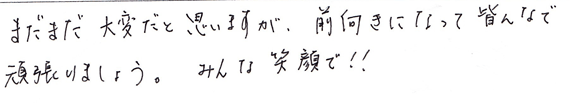 まだまだ大変だと思いますが、前向きになって皆んなで
頑張りましょう。 みんな笑顔で!!